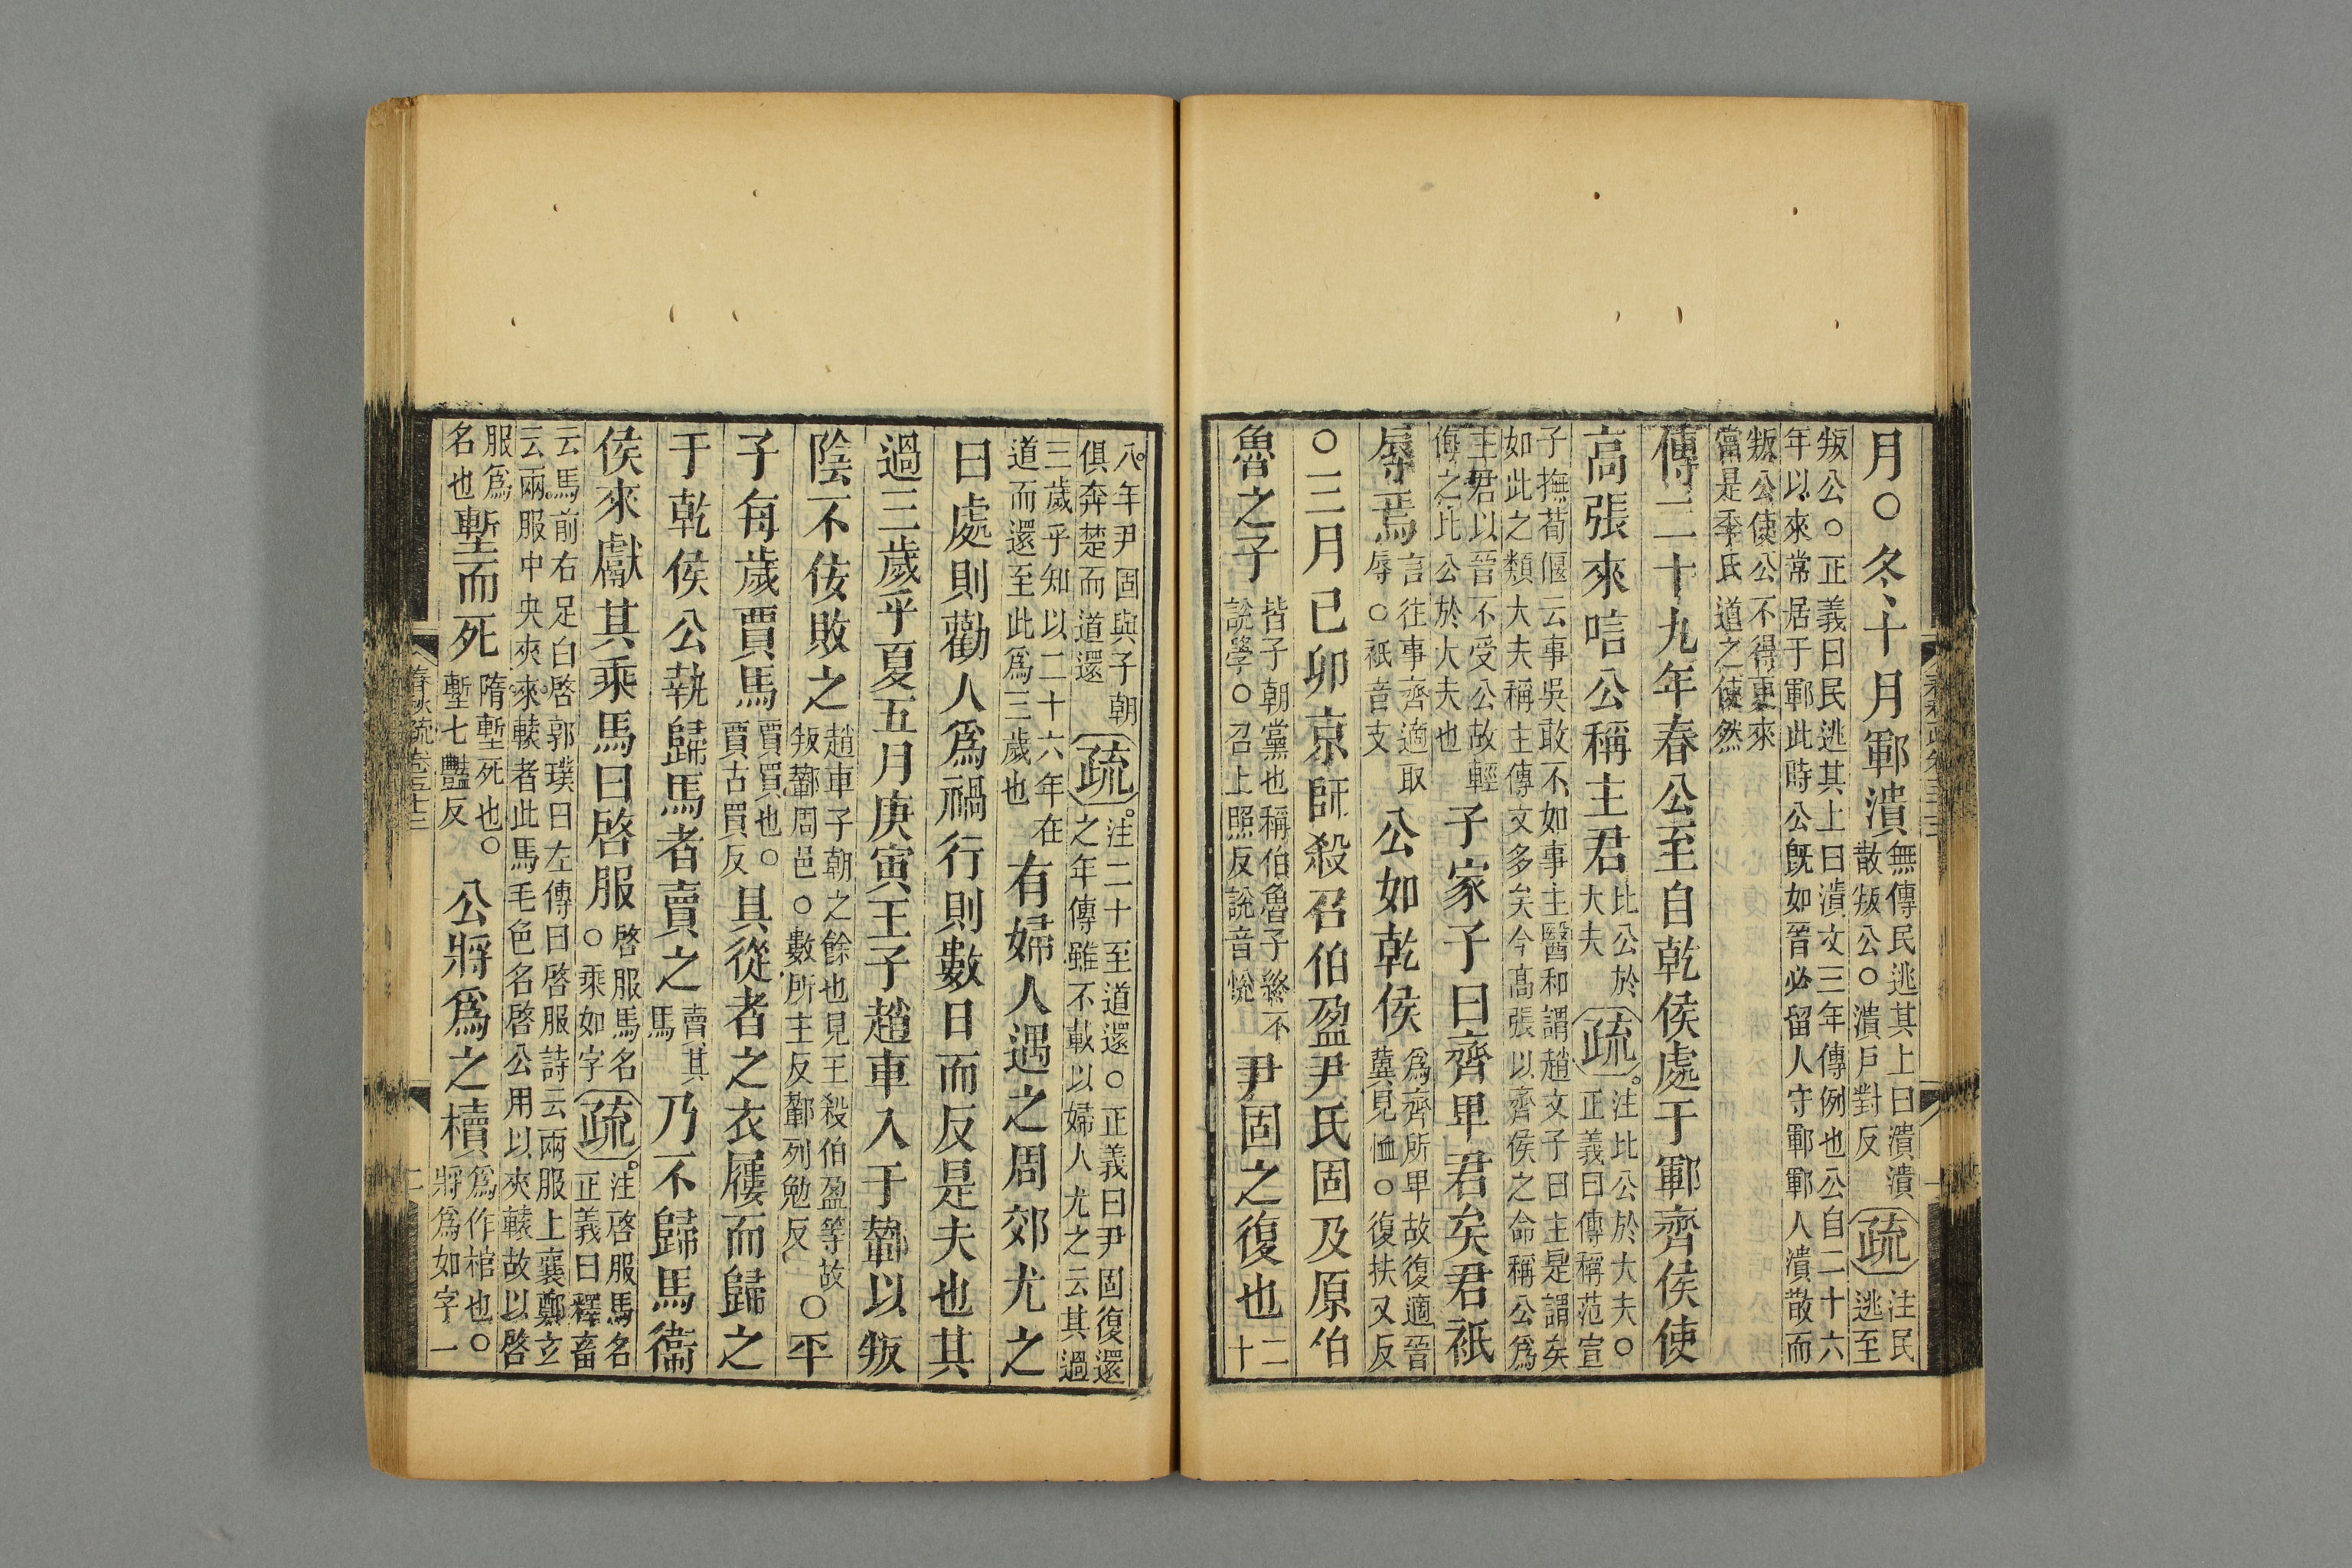 月○冬十月鄆潰無傳民逃其上曰潰潰散叛公○潰戶對反疏注民逃至
叛公○正義曰民逃其上曰潰文三年傳例也公自二十六年以來常居于鄆此時公旣如晉必留人守鄆鄆人潰散而
叛公使公不得更來當是季氏道之使然
傳二十九年春公至自乾侯處于鄆齊侯使
高張來唁公稱主君比公於大夫疏注比公於大夫○正義曰傳稱范宣
子撫荀偃云事吳敢不如事主醫和謂趙文子曰主是謂矣如此之類大夫稱主傳文多矣今高張以齊侯之命稱公爲
主君以晉不受公故輕侮之比公於大夫也子家子曰齊卑君矣君祇
辱焉言往事齊適取辱○祇音支公如乾侯爲齊所卑故復適晉冀見恤○復扶又反
○三月己卯京師殺召伯盈尹氏固及原伯
魯之子皆子朝黨也稱伯魯子終不說學○召上照反說音悅尹固之復也二十
八年尹固與子朝俱奔楚而道還疏注二十至道還○正義曰尹固復還之年傳雖不載以婦人尤之云其過
三歲乎知以二十六年在道而還至此爲三歲也有婦人遇之周郊尤之
曰處則勸人爲禍行則數日而反是夫也其
過三歲乎夏五月庚寅王子趙車入于鄻以叛
陰不佞敗之趙車子朝之餘也見王殺伯盈等故叛鄻周邑○數所主反鄻列勉反○平
子每歲賈馬賈買也○賈古買反具從者之衣屨而歸之
于乾侯公執歸馬者賣之賣其馬乃不歸馬衞
侯來獻其乘馬曰啓服啓服馬名○乘如字疏注啓服馬名正義曰釋畜
云馬前右足白啓郭璞曰左傳曰啓服詩云兩服上襄鄭玄云兩服中央夾來轅者此馬毛色名啓公用以夾轅故以啓
服爲名也塹而死隋塹死也○塹七豔反公將爲之櫝爲作棺也○將爲如字一
春秋疏卷五十三
二